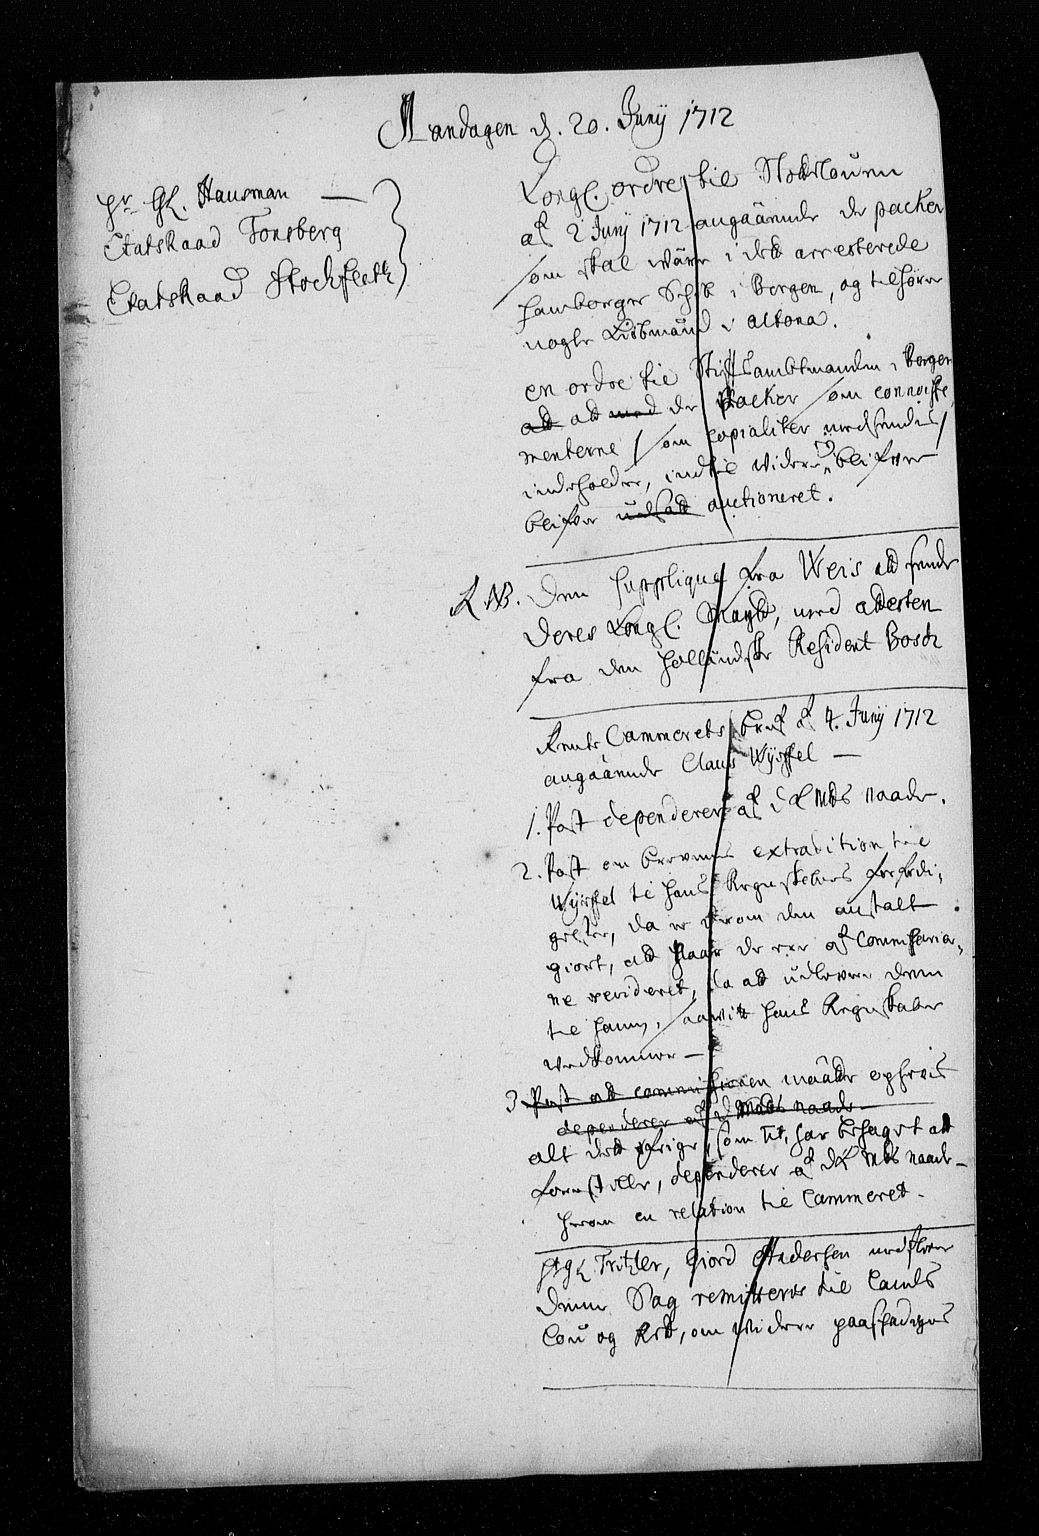 Mandagen d. 20. Junij 1712
Hr. GL. Hausman
Etatsraad Tonsberg
Etatsraad Stockfleth
Kongl. ordres til Slotsloven
af 2 Junij 1712 angaaende de packer
som skal wære i det arresterede
hamborger Schib i Bergen, og tilhører
nogle Kiøbmænd i Altona.
en ordre til Stiftsambtmanden i Bergen
att att med de Packer som connoisse
menterne / som copialiter medsendis /
indeholder, indtil widere bliefver
blifver udsatt auctioneret.
L NB. Den supplique fra Weis att sende
Deres Kongl. Mayst, med attesten
fra den Hollandske Resident Bosch
Rente Cammerets bref af 4. Junij 1712
angaaende Claus Wijssel
1. Post dependerer af d K Mts naade.
2. Post om brevenes extradition til
Wijssel til hans Regnskabers forferdi,
gelse, da er derom den anstalt
giort, att naar de ere af Commissarier,
ne revideret, da att udlevere dem
til ham, saawit hans Regnskaber
wedkommer
3 Post att commissionen maatte ophevis
dependerer af d Mts naade
alt det øfrige, som Tit. har behaget att
forestille, dependerer af d K Mts naade
herom en relation til Cammeret.
Tritzler, Giord Andersen
Denne Sag remitteris til Lands
Lou og Ret, om widere paaskadis